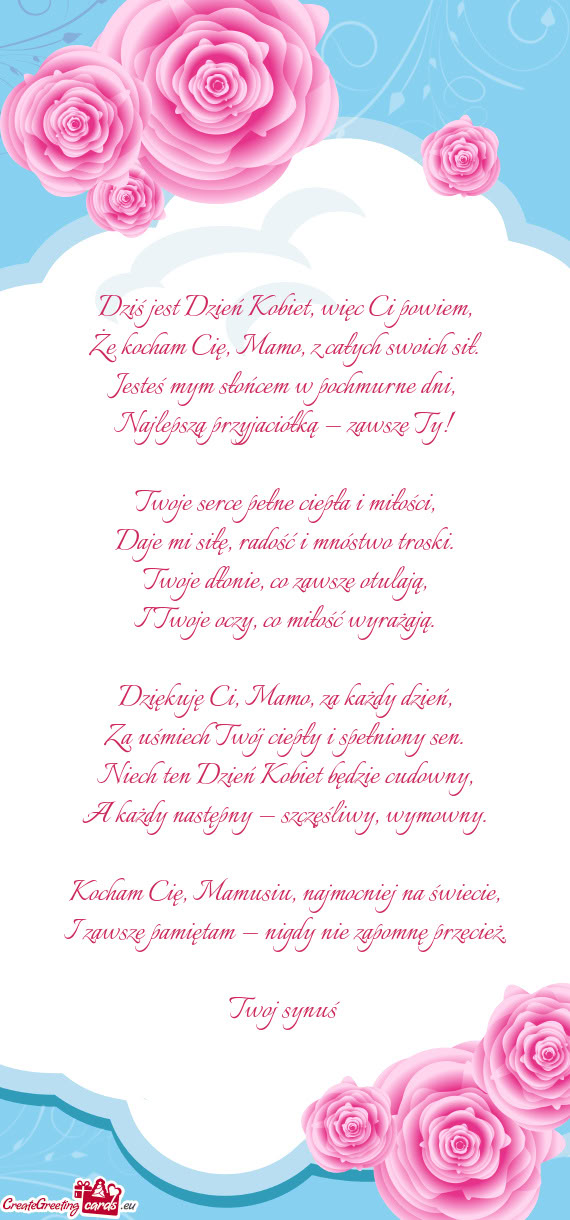 Dziś jest Dzień Kobiet, więc Ci powiem,
Że kocham Cię, Mamo, z całych swoich sił.
Jesteś mym słońcem w pochmurne dni,
Najlepszą przyjaciółką – zawsze Ty!
Twoje serce pełne ciepła i miłości,
Daje mi siłę, radość i mnóstwo troski.
Twoje dłonie, co zawsze otulają,
I Twoje oczy, co miłość wyrażają.
Dziękuję Ci, Mamo, za każdy dzień,
Za uśmiech Twój ciepły i spełniony sen.
Niech ten Dzień Kobiet będzie cudowny,
A każdy następny – szczęśliwy, wymowny.
Kocham Cię, Mamusiu, najmocniej na świecie,
I zawsze pamiętam – nigdy nie zapomnę przecież
Twoj synuś
CreateGreeting cards .eu